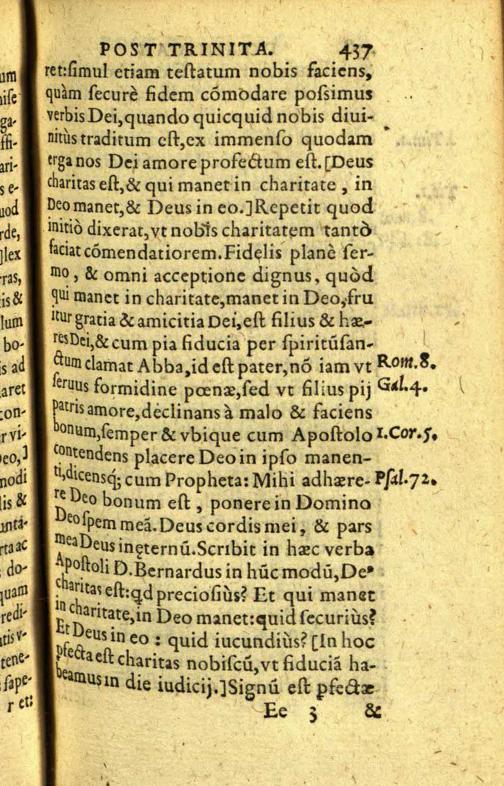 POST TRINITA. 437
ret:ſimul etiam teſtatum nobis faciens,
quàm ſecurè fidem cōmodare poſsimus
verbis Dei,quando quicquid nobis diui-
nitùs traditum eſt,ex immenſo quodam
erga nos Dei amore profectum eſt.[Deus
charitas eſt,& qui manet in charitate , in
Deo manet,& Deus in eo.]Repetit quod
initiò dixerat,vt nobis charitatem tantò
faciat cōmendatiorem.Fidelis planè ſer-
mo , & omni acceptione dignus, quòd
qui manet in charitate,manet in Deo,fru
itur gratia & amicitia Dei,eſt filius & hæ-
res Dei,& cum pia fiducia per ſpiritūſan-
ctum clamat Abba,id eſt pater,nō iam vt Rom.8.
ſeruus formidine pœnæ,ſed vt filius pij Gal.4.
patris amore,declinans à malo & faciens
bonum,ſemper & vbique cum Apoſtolo 1.Cor.5.
contendens placere Deo in ipſo manen-
ti,dicensq́; cum Propheta: Mihi adhære- Pſal.72.
re Deo bonum eſt , ponere in Domino
Deo ſpem meā. Deus cordis mei, & pars
mea Deus in ęternū.Scribit in hæc verba
Apoſtoli D.Bernardus in hūc modū,De⁹
charitas eſt:qd precioſiùs? Et qui manet
in charitate,in Deo manet:quid ſecuriùs?
Et Deus in eo : quid iucundiùs? [In hoc
pfecta eſt charitas nobiſcū,vt fiduciā ha-
beamus in die iudicij.]Signū eſt pfectæ
Ee 3 &
um
ga-
ffi-
ari-
s e-
uod
rde,
]lex
ras,
is &
lum
bo-
is ad
aret
con-
r vi-
Deo,]
modi
lis &
untā-
rta ac
do-
quam
redi-
tis v-
tene-
ſape-
r et: